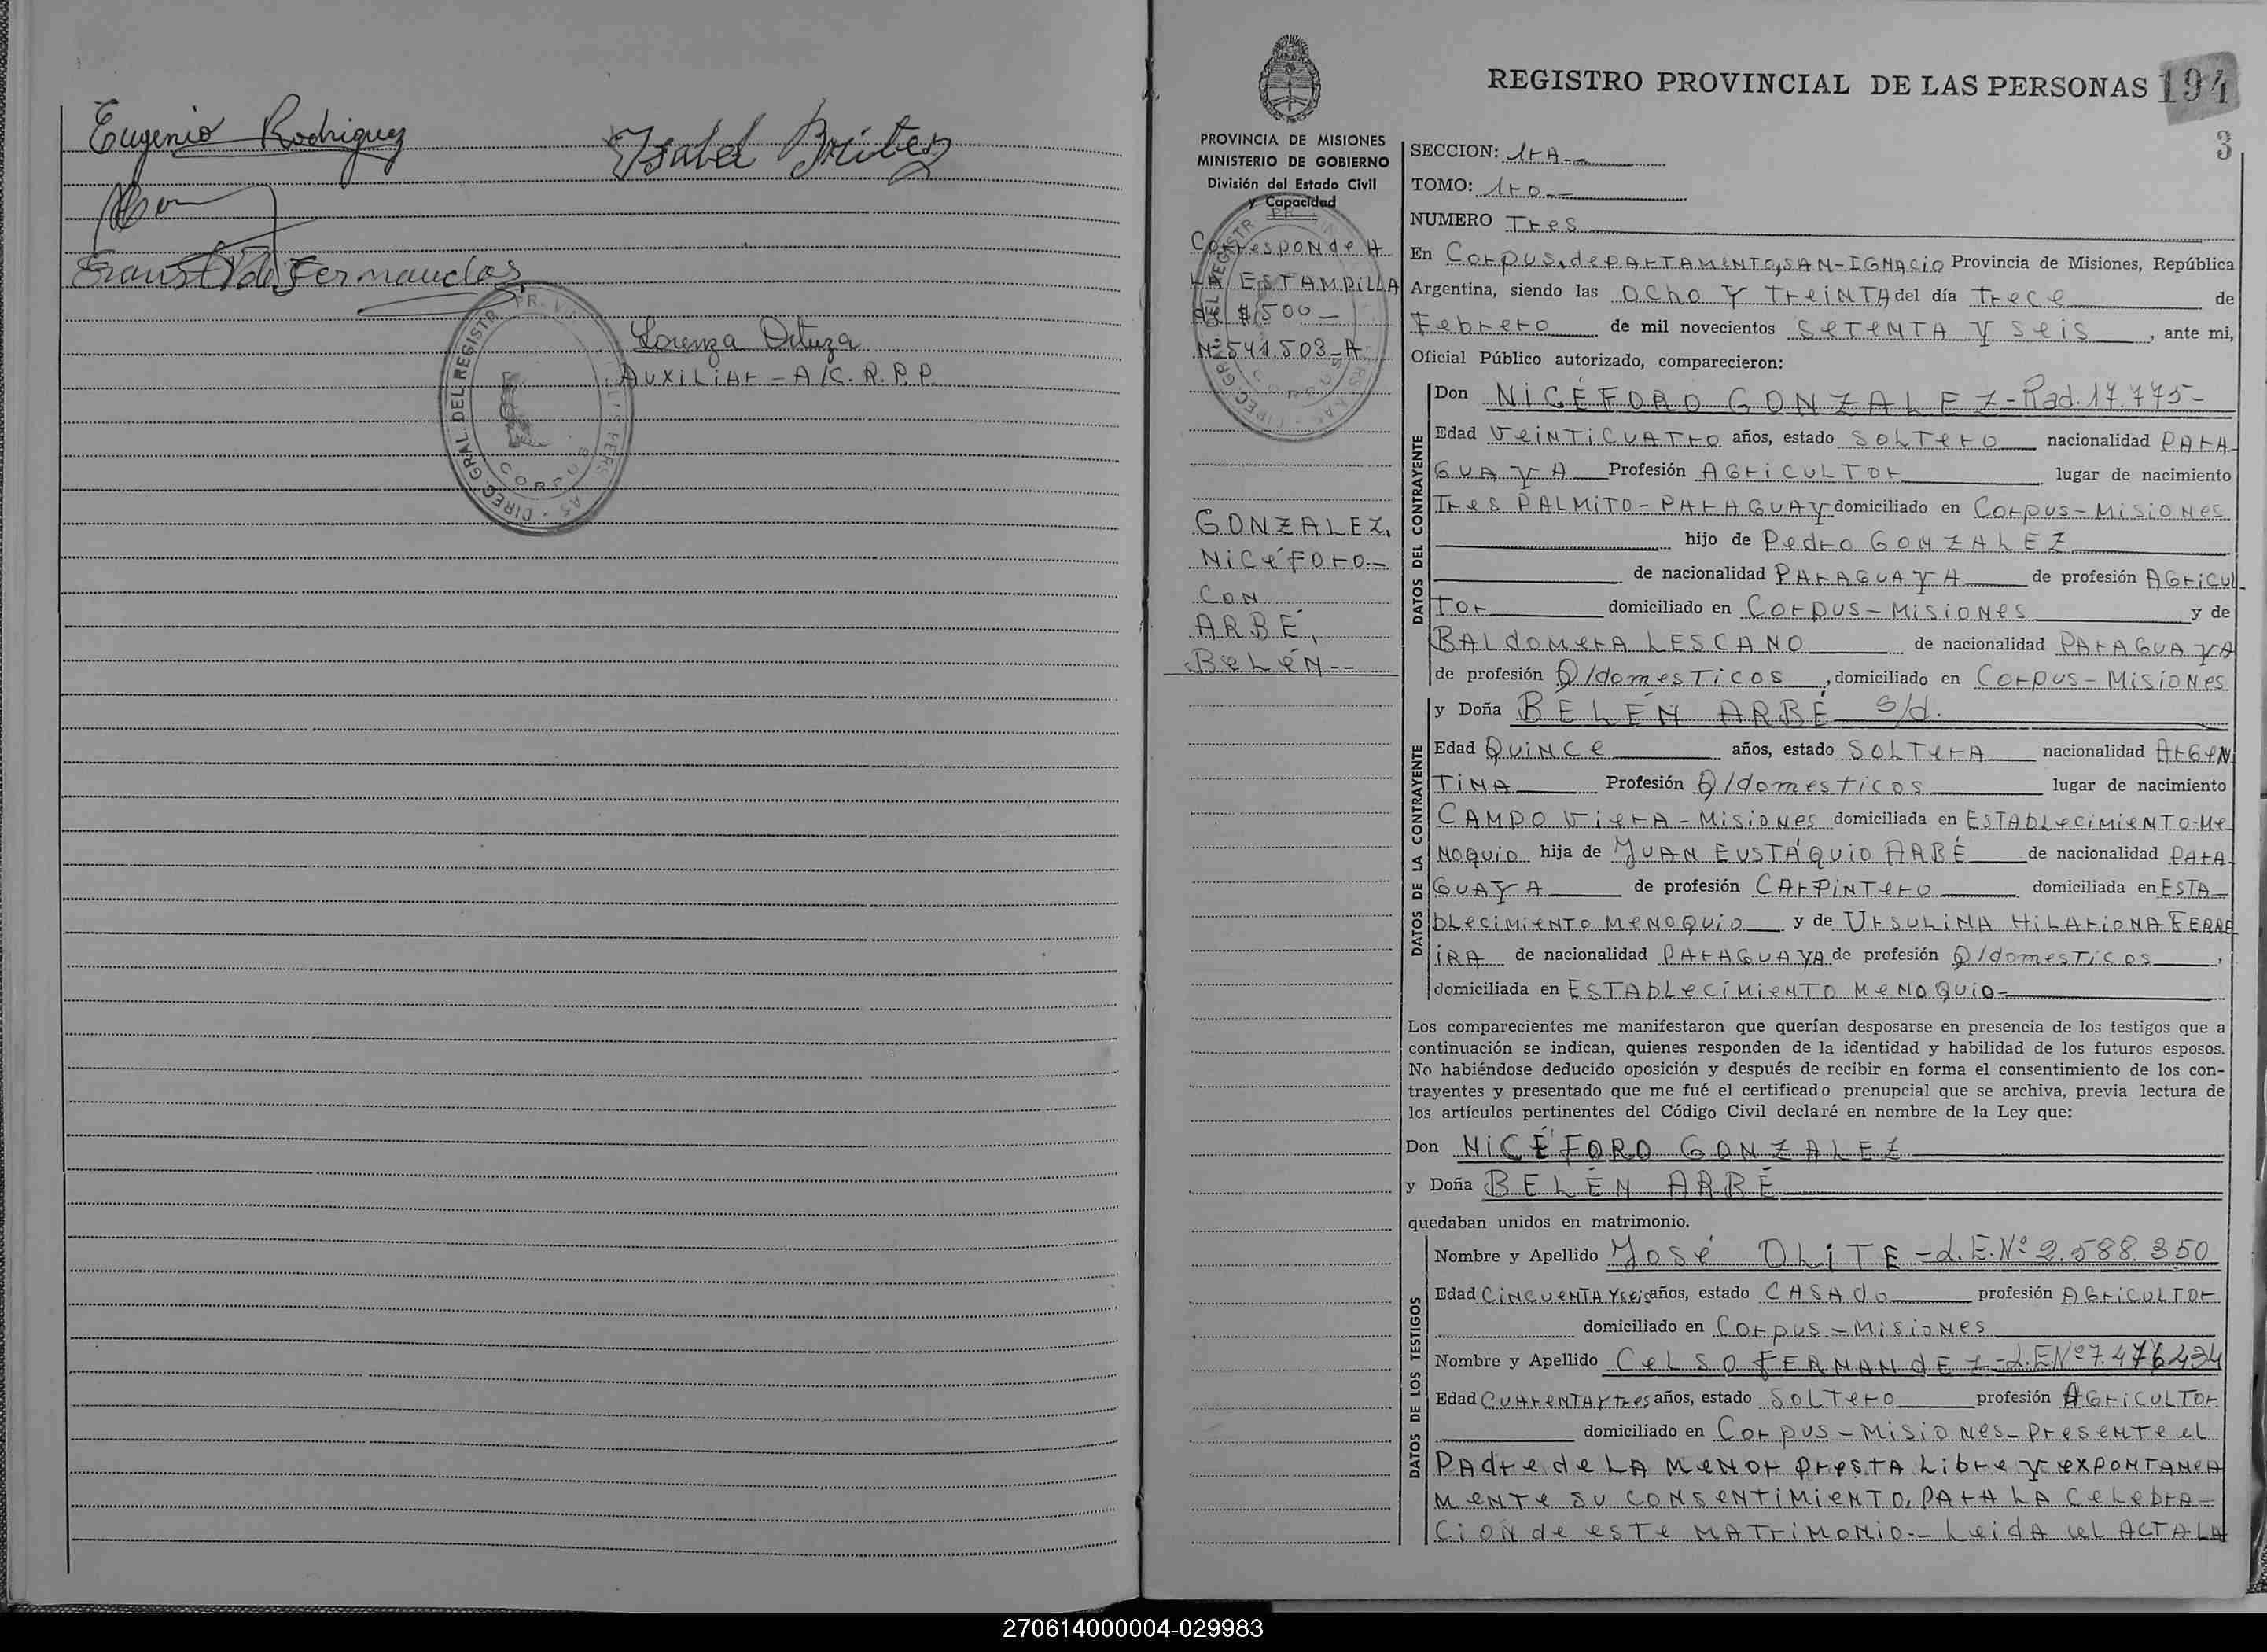 Eugenio Rodriguez
Isabel Brítez
Fernandes
Lorenza Ortuza
Auxiliar - A/C. R. P. P.
DIREC. GRAL. DEL REGISTR. PERS AS
CORPUS
REGISTRO PROVINCIAL DE LAS PERSONAS 194
3
PROVINCIA DE MISIONES
MINISTERIO DE GOBIERNO
División del Estado Civil
y Capacidad
Corresponde A
LA ESTAMPILLA
del $ 1500 -
Nº 541.503-A
GONZALEZ,
NiCéFOrO.-
CON
ARBÉ,
BeLéN--
SECCION: 1rA--
TOMO: 1ro--
NUMERO Tres
En Corpus, departamento, SAN-IGNACiO Provincia de Misiones, República
Argentina, siendo las OCho Y TreiNTA del día Trece de
Febrero de mil novecientos SeTeNTA Y Seis, ante mi,
Oficial Público autorizado, comparecieron:
DATOS DEL CONTRAYENTE
Don NiCÉFORO GONZALEZ-Rad.17.775-
Edad VeiNTiCUATrO años, estado SOLTerO nacionalidad PArA
GUAYA Profesión AGriCULTOr lugar de nacimiento
Tres PALMiTO-PArAGUAY domiciliado en Corpus-Misiones
hijo de Pedro GONZALEZ
de nacionalidad PArAGUAYA de profesión AGriCUL
TOr domiciliado en Corpus-Misiones y de
BALdomerA LESCANO de nacionalidad PArAGUAYA
de profesión Q/domesTiCOS, domiciliado en Corpus-Misiones
DATOS DE LA CONTRAYENTE
y Doña BELÉN ARBÉ S/d.
Edad QuiNCe años, estado SOLTerA nacionalidad ArGeN
TiNA Profesión Q/domesticos lugar de nacimiento
CAMPO VierA-Misiones domiciliada en ESTAbLeCiMieNTO-Me
NOQUiO hija de JUAN EUSTÁQUiO ARBÉ de nacionalidad PArA
GUAYA de profesión CArPiNTerO domiciliada en ESTA-
bLeCiMieNTO MeNOQUiO y de UrSULiNA HiLAriONA FERRE
iRA de nacionalidad PArAGUAYA de profesión Q/domesTiCOS,
domiciliada en ESTAbLeCiMieNTO MeNOQUiO-
Los comparecientes me manifestaron que querían desposarse en presencia de los testigos que a
continuación se indican, quienes responden de la identidad y habilidad de los futuros esposos.
No habiéndose deducido oposición y después de recibir en forma el consentimiento de los con-
trayentes y presentado que me fué el certificado prenupcial que se archiva, previa lectura de
los artículos pertinentes del Código Civil declaré en nombre de la Ley que:
Don NiCÉFORO GONZALEZ
y Doña BELÉN ARBÉ
quedaban unidos en matrimonio.
DATOS DE LOS TESTIGOS
Nombre y Apellido José OLiTE-L.E.Nº 2.588.350
Edad CiNCUeNTA Y seis años, estado CASAdo profesión AGriCULTOr
domiciliado en Corpus-Misiones
Nombre y Apellido CeLSO FERNANdEZ-L.E Nº 7.476434
Edad CUAreNTAYtres años, estado SOLTerO profesión AGriCULTOr
domiciliado en Corpus-Misiones-PreseNTe eL
PAdre de LA MeNOr PresTA Libre Y expONTANeA
MeNTe SU CONSeNTiMieNTO, PArA LA CeLebrA-
CiON de esTe MATriMONiO.-Leida eL ACTA LA
270614000004-029983